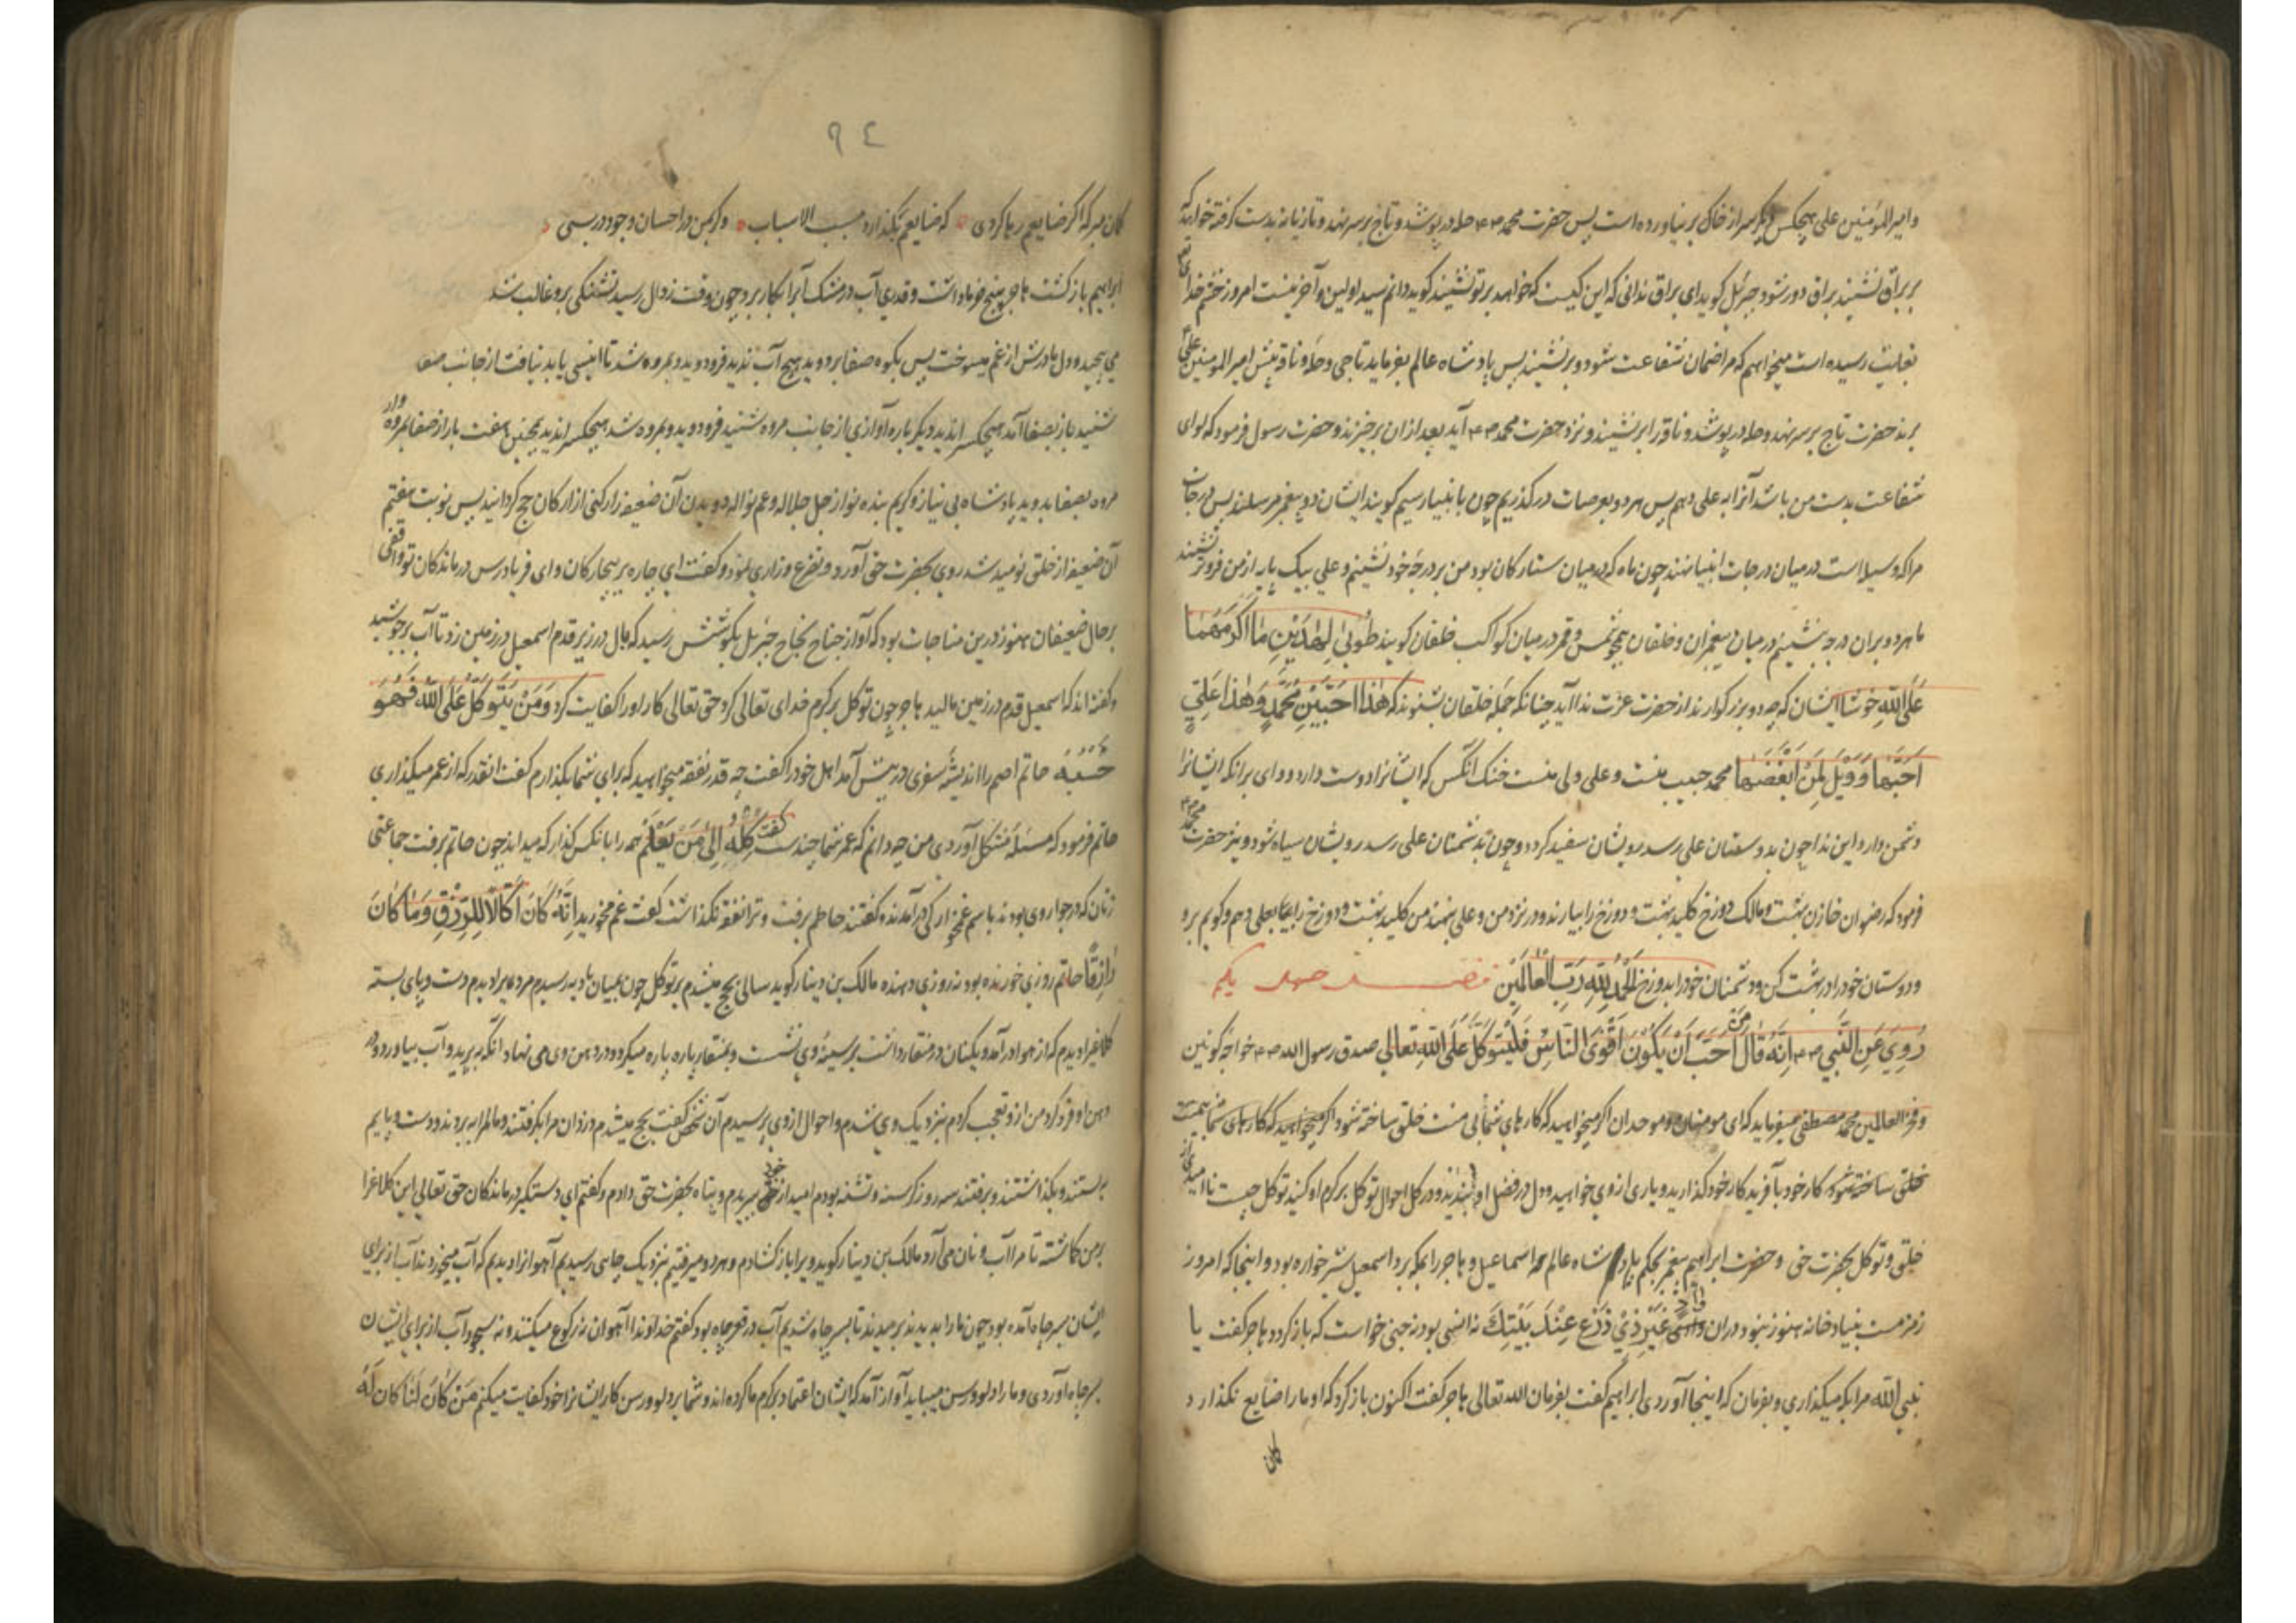 وامیرالمؤمنین علی هیچکس دیگر سر از خاک بر نیاورده است پس حضرت محمد صلعم حله در پوشد و تاج بر سر نهد و تازیانه بدست گرفته خواهد که
بر براق نشیند براق دور شود جبرئیل گوید ای براق ندانی که این کیست که خواهد بر تو نشیند گوید دانم سید اولین و آخرینست امروز ختم خدای
رسیده است میخواهم که مرا ضمان شفاعت شود و بر نشیند پس پادشاه عالم بفرماید تا جی وحله و ناقه پیش امیرالمومنین علی
برند حضرت تاج بر سر نهد و حله در پوشد و ناقه را بر نشیند و نزد حضرت محمد صلعم آید بعد از ان برخیزند و حضرت رسول فرمود که لوای
شفاعت بدست من باشد آنرا به علی دهم پس هر دو بعرصات در گذریم چون بانبیا رسیم گویند ایشان دو پیغمبر مرسلند پس درجات
مرا که وسیله است در میان درجات انبیا نهند چون ماه که در میان ستارگان بود من بر درجه خود نشینم و علی بیک پایه از من فروتر نشیند
ما هر دو بران درجه نشینیم در میان پیغمبران و خلقان همچو شمس و قمر در میان کواکب خلقان گویند طُوبیٰ لِهٰذَیْنِ مٰا اَکْرَمَهُمٰا
عَلَی اللهِ خوشا ایشان که چه دو بزرگوارند از حضرت عزت ندا آید چنانکه جمله خلقان بشنوند که هٰذٰا حَبِیبِی مُحَمَّدٍ وَهٰذٰا عَلِیّ
اَحَبَّهُما وَوَیْلٌ لِمَنْ اَبْغَضَهُما محمد حبیب منست و علی ولی منست خنک آنکس که ایشانرا دوست دارد و وای برانکه ایشانرا
دشمن دارد این ندا چون بدوستان علی رسد رویشان سفید گردد و چون بدشمنان علی رسد رویشان سیاه شود و نیز حضرت محمد صلعم
فرمود که رضوان خازن بهشت و مالک دوزخ کلید بهشت و دوزخ را بیارند و در نزد من و علی بنهند من کلید بهشت و دوزخ را بعلی دهم و گویم برو
و دوستان خود را در بهشت کن و دشمنان خود را بدوزخ اَلْحَمْدُ لِلّٰهِ رَبِّ الْعٰالَمِیْنَ فصل چهل یکم
رُوِیَ عَنِ النَّبِی صلعم اِنَّهُ قٰالَ مَنْ اَحَبَّ اَنْ یَکُونَ اَقْوَی النّٰاسِ فَلْیَتَوَکَّلْ عَلَی اللهِ تَعٰالی صدق رسول الله صلعم خواجه کونین
و فخر العالمین محمد مصطفی میفرماید که ای مومنان و موحدان اگر میخواهید که کارهای شما بی منت خلق ساخته شود
کار خود بآفریدگار خود گذارید و یاری از وی خواهید و دل در فضل او بندید و در کل احوال توکل بر کرم او کنید توکل چیست ناامیدی از
خلق و توکل بحضرت حق و حضرت ابراهیم پیغمبر بحکم پادشاه عالم اسماعیل و هاجر را بمکه برد و اسمعیل شیرخواره بود و اینجا که امروز
زمزمست بنیاد خانه هنوز نبود و دران وٰادٍ غَیْرِ ذِیْ زَرْعٍ عِنْدَ بَیْتِکَ نه انسی بود نه جنی خواست که باز گردد هاجر گفت یا
نبی الله مرا بکه میگذاری و بفرمان که اینجا آوردی ابراهیم گفت بفرمان الله تعالی هاجر گفت اکنون باز گرد که او ما را ضایع نگذارد
کمان
۹٤
کمان مبر که اگر ضایعم رها کردی که ضایعم بگذارد مسبب الاسباب
ابراهیم باز گشت هاجر و قدری آب در مشک آنرا بکار برد چون وقت زوال رسید تشنگی برو غالب شد
و دل مادرش از غم میسوخت پس بکوه صفا بر دوید هیچ آب ندید فرو دوید و بمروه شد تا انیسی یابد نیافت از جانب صفا
شنید باز بصفا آمد هیچکس را ندید دیگر باره آوازی از جانب مروه شنید فرو دوید و بمروه شد هیچکس را ندید همچنین هفت بار از صفا بمروه و از
مروه بصفا بدوید پادشاه بی نیاز و کریم بنده نواز جل جلاله و عم نواله دویدن آن ضعیفه را رکنی از ارکان حج گردانید پس نوبت هفتم
آن ضعیفه از خلق نومید شد روی بحضرت حق آورد و تضرع و زاری نمود و گفت ای چاره بیچارگان و ای فریادرس درماندگان تو واقفی
بر حال ضعیفان هنوز درین مناجات بود که آواز جناح جبرئیل بگوشش رسید که بال در زیر قدم اسمعیل در زمین زد تا آب برجوشید
و گفته اند که اسمعیل قدم در زمین مالید هاجر چون توکل بر کرم خدای تعالی کرد حق تعالی کار او را کفایت کرد وَمَنْ یَتَوَکَّلْ عَلَی اللهِ فَهُوَ
حَسْبُهُ حاتم اصم را اندیشه سفری در پیش آمد اهل خود را گفت چه قدر نفقه میخواهید که برای شما بگذارم گفت انقدر که از عمر میگذاری
حاتم فرمود که مسئله مشکل آوردی من چه دانم که عمر شما چندست گفت کِلْهُ اِلیٰ مَنْ یَعْلَمُ همه را بانکس گذار که میداند چون حاتم برفت جماعتی
زنان که در جوار وی بودند باسم غمخوارگی در آمدند و گفتند حاتم برفت و ترا نفقه نگذاشت گفت غم مخورید اِنَّهُ کٰانَ اَکّٰالًا لِلرِّزْقِ وَمٰا کٰانَ
رٰازِقًا حاتم روزی خورنده بود نه روزی دهنده مالک بن دینار گوید سالی بحج میشدم بر توکل چون بمیان بادیه رسیدم مردی را دیدم دست و پای بسته
کلاغی را دیدم که از هوا در آمد و یکتا نان در منقار داشت بر سینه وی نشست و بمنقار پاره پاره میکرد و در دهن وی می نهاد آنگه بپرید و آب بیاورد و در
دهن او فرو کرد من ازو تعجب کردم بنزدیک وی شدم و احوال ازوی پرسیدم آن شخص گفت بحج میشدم دزدان مرا بگرفتند و مالم را ببردند و دست و پایم
ببستند و بگذاشتند و برفتند سه روز گرسنه و تشنه بودم امید از خود ببریدم و پناه بحضرت حق دادم و گفتم ای دستگیر درماندگان حق تعالی این کلاغ را
بر من گماشته تا مرا آب و نان می آرد مالک بن دینار گوید ویرا باز گشادم و هر دو میرفتیم بنزدیک چاهی رسیدیم آهوان را دیدیم که آب میخوردند آب از برای
ایشان بسر چاه آمده بود چون ما را بدیدند برمیدند تا بسر چاه شدیم آب در قعر چاه بود گفتم خداوندا آهوان نه رکوع میکنند و نه سجود آب از برای ایشان
بسر چاه آوردی و ما را دلو و رسن میباید آواز آمد که ایشان اعتماد بر کرم ما کرده اند و شما بر دلو و رسن کار ایشانرا خود کفایت میکنم مَنْ کٰانَ لَنٰا کٰانَ لَهُ